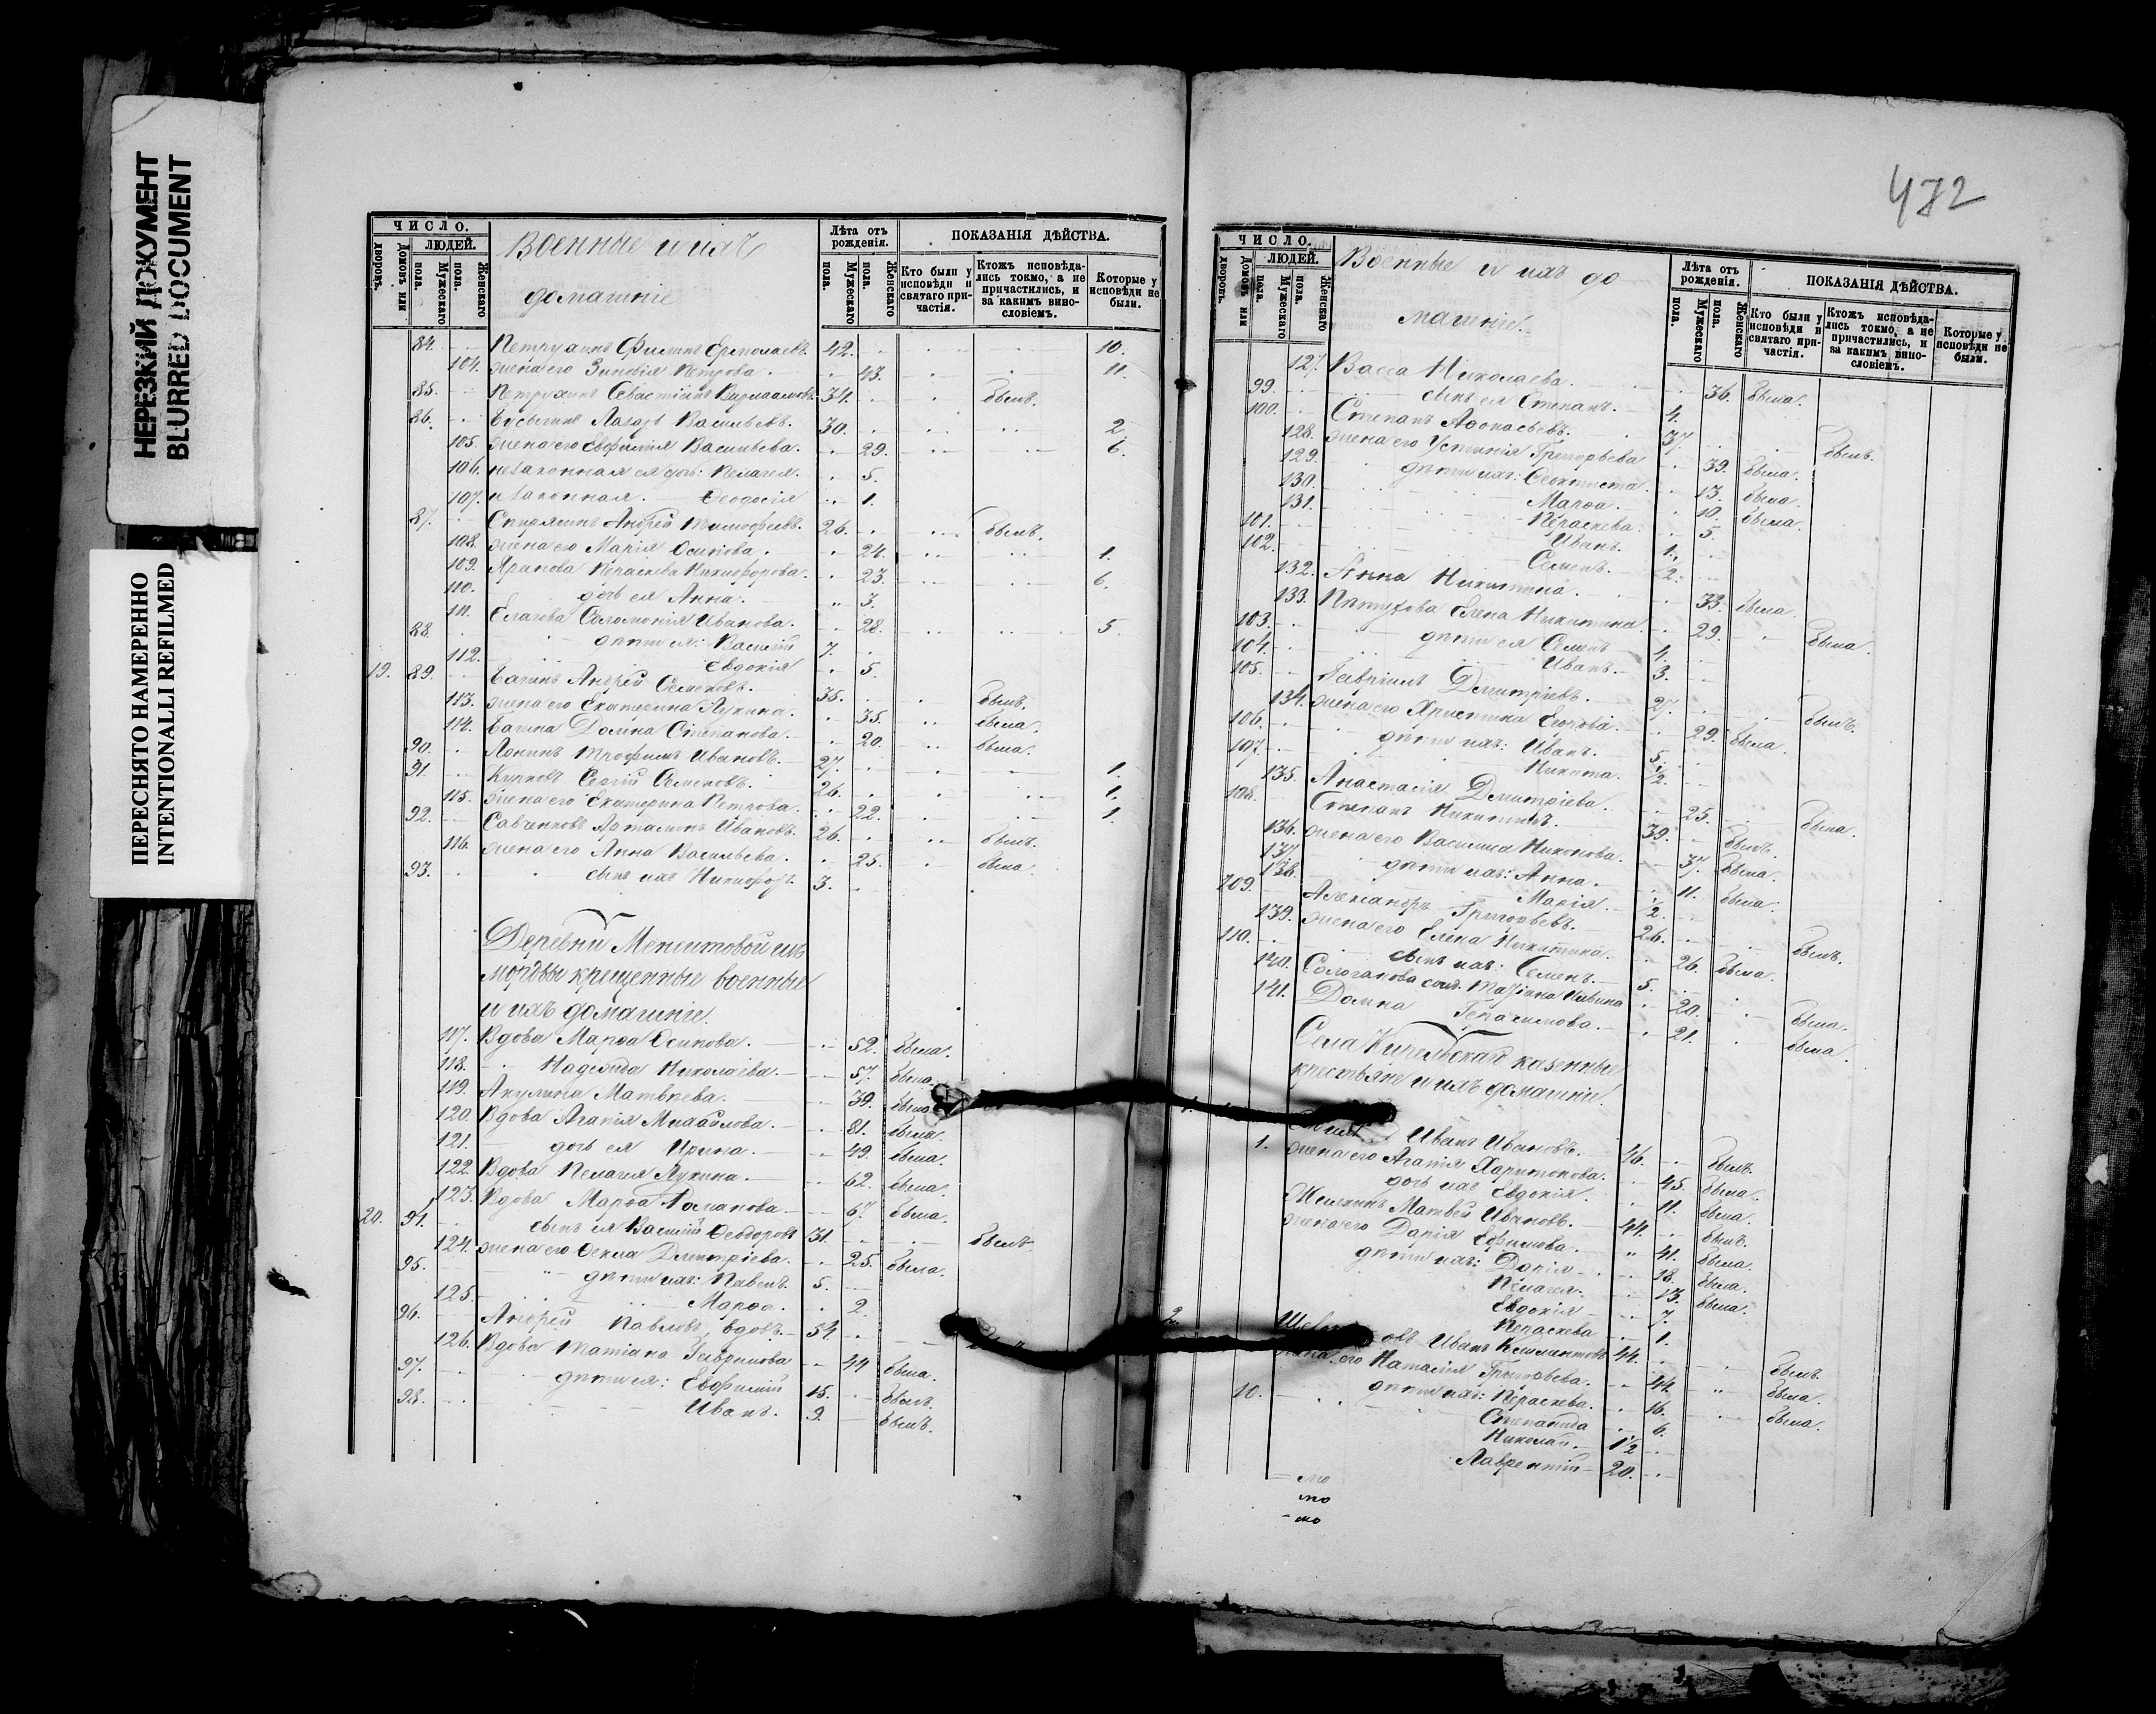 НЕРЕЗКИЙ ДОКУМЕНТ
BLURRED DOCUMENT
ПЕРЕСНЯТО НАМЕРЕННО
INTENTIONALLI REFILMED
ЧИСЛО.
ЛЮДЕЙ.
Домовъ или дворовъ.
Мужескаго пола.
Женскаго пола.
Военные и ихъ
домашніе
Лѣта отъ рожденія.
Мужескаго пола.
Женскаго пола.
ПОКАЗАНІЯ ДѢЙСТВА.
Кто были у исповѣди и святаго причастія.
Ктожъ исповѣдались токмо, а не причастились, и за какимъ винословіемъ.
Которые у исповѣди не были.
84. Петрухинъ Филипъ Ермолаевъ. 42. 10.
104. жена его Зиновія Петрова. 43. 11.
85. Петрухинъ Севастіянъ Варлаамовъ. 34. былъ.
86. Лазарь Васильевъ. 30. 2
105. жена его Евфимія Васильева. 29. 6.
106. незаконная ея дочь: Пелагея. 5.
107. незаконная. Ѳеодосія 1.
87. Андрей Тимофеевъ. 26. былъ.
108. жена его Марія Осипова. 24. 1.
109. Арапова Параскева Никифорова. 23. 6.
110. дочь ея Анна. 3.
111. Елагова Соломонія Иванова. 28. 5.
88. дѣти ея: Василій 7.
112. Евдокія 5.
19. 89. Багинъ Андрей Семеновъ. 35. былъ.
113. жена его Екатерина Лукина. 35. была.
114. Багина Домна Степанова. 20. была.
90. Лонинъ Трофимъ Ивановъ. 27. 1.
91. Сергій Семеновъ. 26. 1.
115. жена его Екатерина Петрова. 22. 1.
92. Савченковъ Артамонъ Ивановъ. 26. былъ.
116. жена его Анна Васильева. 25. была.
93. сынъ ихъ Никифоръ. 3.
Деревни Менситовой изъ
мордвы крещенные военные
и ихъ домашніе.
117. Вдова Марѳа Осипова. 52. была.
118. Надежда Николаева. 57. была.
119. Акулина Матвѣева. 39. была
120. Вдова Агапія Михайлова. 81. была.
121. дочь ея Ирина. 49. была.
122. Вдова Пелагея Лукина. 62. была.
123. Вдова Марѳа Романова. 67. была.
20. 94. сынъ ея Василій Ѳеодоровъ 31. былъ
124. жена его Ѳекла Дмитріева. 25. была.
95. дѣти ихъ: Павелъ. 5.
125. Марѳа. 2
96. Андрей Павловъ, вдовъ. 54
126. Вдова Татіана Гаврилова 44 была.
97. дѣти ея: Евфимій 15. былъ.
98. Иванъ. 9. былъ.
472
ЧИСЛО.
ЛЮДЕЙ.
Домовъ или дворовъ.
Мужескаго пола.
Женскаго пола.
Военные и ихъ до
машніе.
Лѣта отъ рожденія.
Мужескаго пола.
Женскаго пола.
ПОКАЗАНІЯ ДѢЙСТВА.
Кто были у исповѣди и святаго причастія.
Ктожъ исповѣдались токмо, а не причастились, и за какимъ винословіемъ.
Которые у исповѣди не были.
127. Васса Николаева. 36. была.
99. сынъ ея Степанъ. 4.
100. Степанъ Аѳонасьевъ. 37. былъ.
128. жена его Устинія Григорьева 39. была.
129. дѣти ихъ: Ѳеоктиста. 13. была.
130. Марѳа. 10. была.
131. Параскева. 5.
101. Иванъ. 1.
102. Семенъ. 1/2.
132. Анна Никитина. 33. была.
133. Петухова Елена Никитина. 29. была.
103. дѣти ея Семенъ 4.
104. Иванъ. 3.
105. Гавріилъ Дмитріевъ. 27. былъ.
134. жена его Христина Егорова. 29. была.
106. дѣти ихъ: Иванъ. 5.
107. Никита. 1/2.
135. Анастасія Дмитріева. 25. была.
108. Степанъ Никитинъ. 39. былъ.
136. жена его Василиса Никонова. 37. была.
137. дѣти ихъ: Анна. 11. была.
138. Марія. 1/2.
109. Александръ Григорьевъ. 26. былъ.
139. жена его Елена Никитина. 26. была.
110. сынъ ихъ: Семенъ. 5.
140. Сологанова солд. Татіана 20. была.
141. Домна Герасимова. 21. была.
Села Кичельскаго казенные
крестьяне и ихъ домашніе.
1. Иванъ Ивановъ. 46. былъ.
1. жена его Агапія Харитонова. 45. была.
дочь ихъ Евдокія. 11. была.
Жилкинъ Матвей Ивановъ. 44. былъ.
жена его Дарія Ефимова. 41. была.
дѣти ихъ: Дарія 18. была.
Пелагея. 13. была.
Евдокія 7.
Параскева 1.
2. Иванъ Климантовъ 44. былъ.
жена его Наталія Григорьева. 44. была
10. дѣти ихъ: Параскева. 16. была.
Степанида 6.
Николай. 1 1/2
Лаврентій 20.
мо
мо
мо